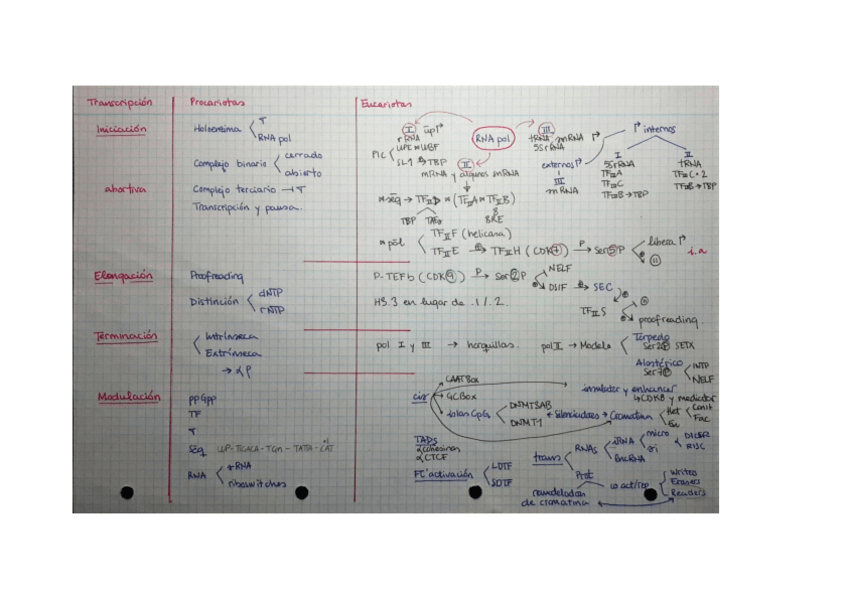 Transcripción Procariotas Eucariotas
Iniciación
Holoenzima
RNA pol
Complejo binario cerrado
abierto
abortiva Complejo terciario
Transcripción y pausa.
RNA pol
I
rRNA
UPE UBF
PIC SL1 TBP
II
mRNA y algunos snRNA
III
tRNA
5SrRNA
externos
III
internos
I
5SrRNA
TFIIIA
TFIIIC
TFIIIB → TBP
II
tRNA
TFIIIC · 2
TFIIIB → TBP
seq → TFIID (TFIIA TFIIB)
TBP TAFs BRE
pol TFIIF (helicasa)
TFIIE → TFIIH (CDK7) P → Ser5P libera
i.a
Elongación Proofreading
Distinción dNTP
rNTP
P-TEFb (CDK9) P → Ser2P NELF
DSIF → SEC
H3.3 en lugar de .1/.2.
TFIIS
proofreading.
Terminación Intrínseca
Extrínseca
→ αP
pol I y III → horquillas. pol II → Modelo Torpedo
Ser2P SETX
Alostérico
Ser7P INTP
NELF
Modulación ppGpp
TF
Seq UUP-TTGACA-TGn-TATTA-CAT
RNA
riboswitches
cis CAATBox
GCBox
islas CpG DNMT3AB
DNMT1
Silenciadores Cromatina Het Const
Fac
Eu
insulator y enhancer
CDK8 y mediator
TADs
cohesinas
CTCF
FT activación LDTF
SDTF
trans RNAs micro
si
lncRNA
DICER
RISC
Prot
remodeladora
de cromatina
co act/rep Writers
Erasers
Readers